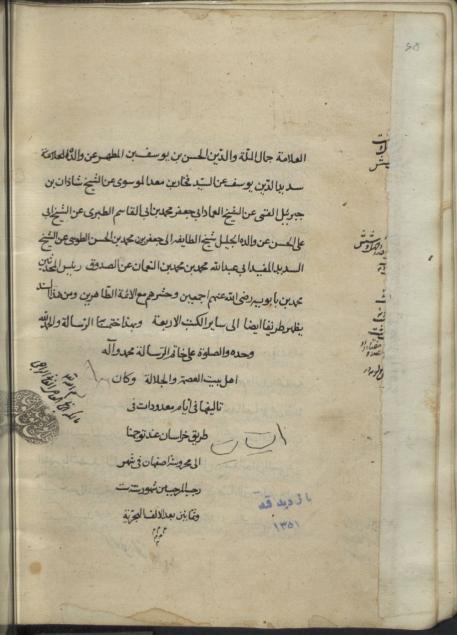 العلامة جمال الملة والدين الحسن بن يوسف بن المطهر عن والده العلامة
سديد الدين يوسف عن السيد فخار بن معد الموسوي عن الشيخ شاذان بن
جبرئيل القمي عن الشيخ العماد ابي جعفر محمد بن ابي القاسم الطبري عن الشيخ ابي
علي الحسن عن والده الجليل شيخ الطايفه ابي جعفر بن محمد بن الحسن الطوسي عن الشيخ
السديد المفيد ابي عبد الله محمد بن محمد بن النعمان عن الصدوق رئيس المحدثين
محمد بن بابويه رضي الله عنهم اجمعين وحشرهم مع الائمة الطاهرين ومن هذا السند
يظهر طريقنا ايضا الى ساير الكتب الاربعة وبهذا ختمنا الرسالة والحمد لله
وحده والصلوة على خاتم الرسالة محمد وآله
اهل بيت العصمة والجلالة وكان
تاليفها في ايام معدودات في
طريق خراسان عند توجهنا
الى محروسة اصفهان في شهر
رجب المرجب من شهور سنة ست
وثمانين بعد الالف الهجرية
بازدید شد
۱۳۵۱